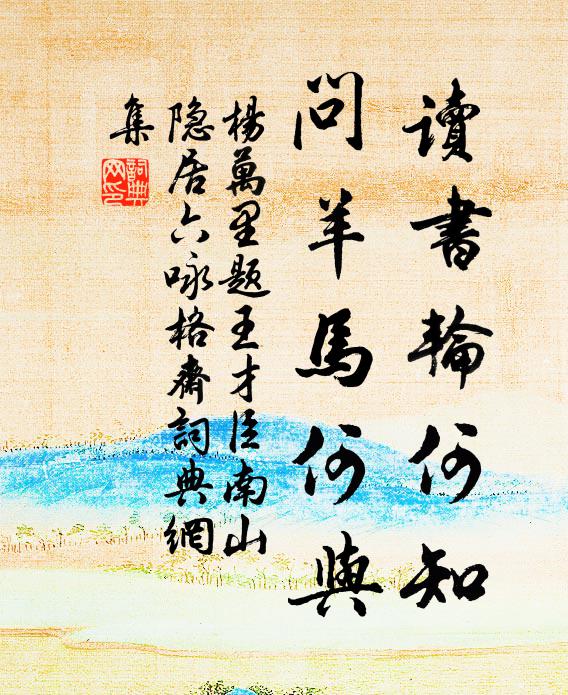 讀書輪何知
問羊馬何與
楊萬里題王才臣南山
隐居六咏格齋詞典網
集
詞典
网印